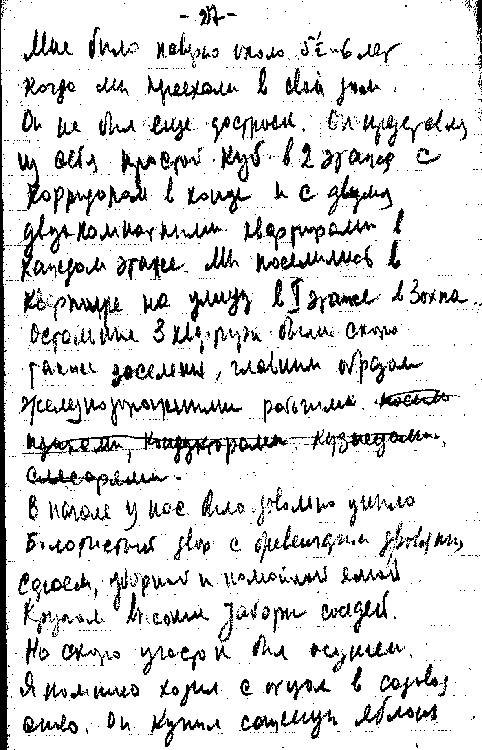 - 27 -
Мне было наверно около 5и-6 лет
когда мы приехали в свой дом.
Он не был еще достроен. Он представлял
из себя простой куб в 2 этажа с
корридорам в конце и с двумя
двухкомнатными квартирами в
каждом этаже. Мы поселились в
квартире на улицу в I этаже в 3 окна.
Остальные 3 квартиры были скоро
также заселены, главным образом
железнодорожными рабочими
кондукторами, кузнецами,
слесарями.
В начале у нас было довольно уныло
Болотистый двор с деревянным дровяным
сараем, уборной и помойной ямой
Кругом высокие заборы соседей.
Но скоро участок был осушен.
Я помню ходил с отцом в
Он купил саженцы яблонь